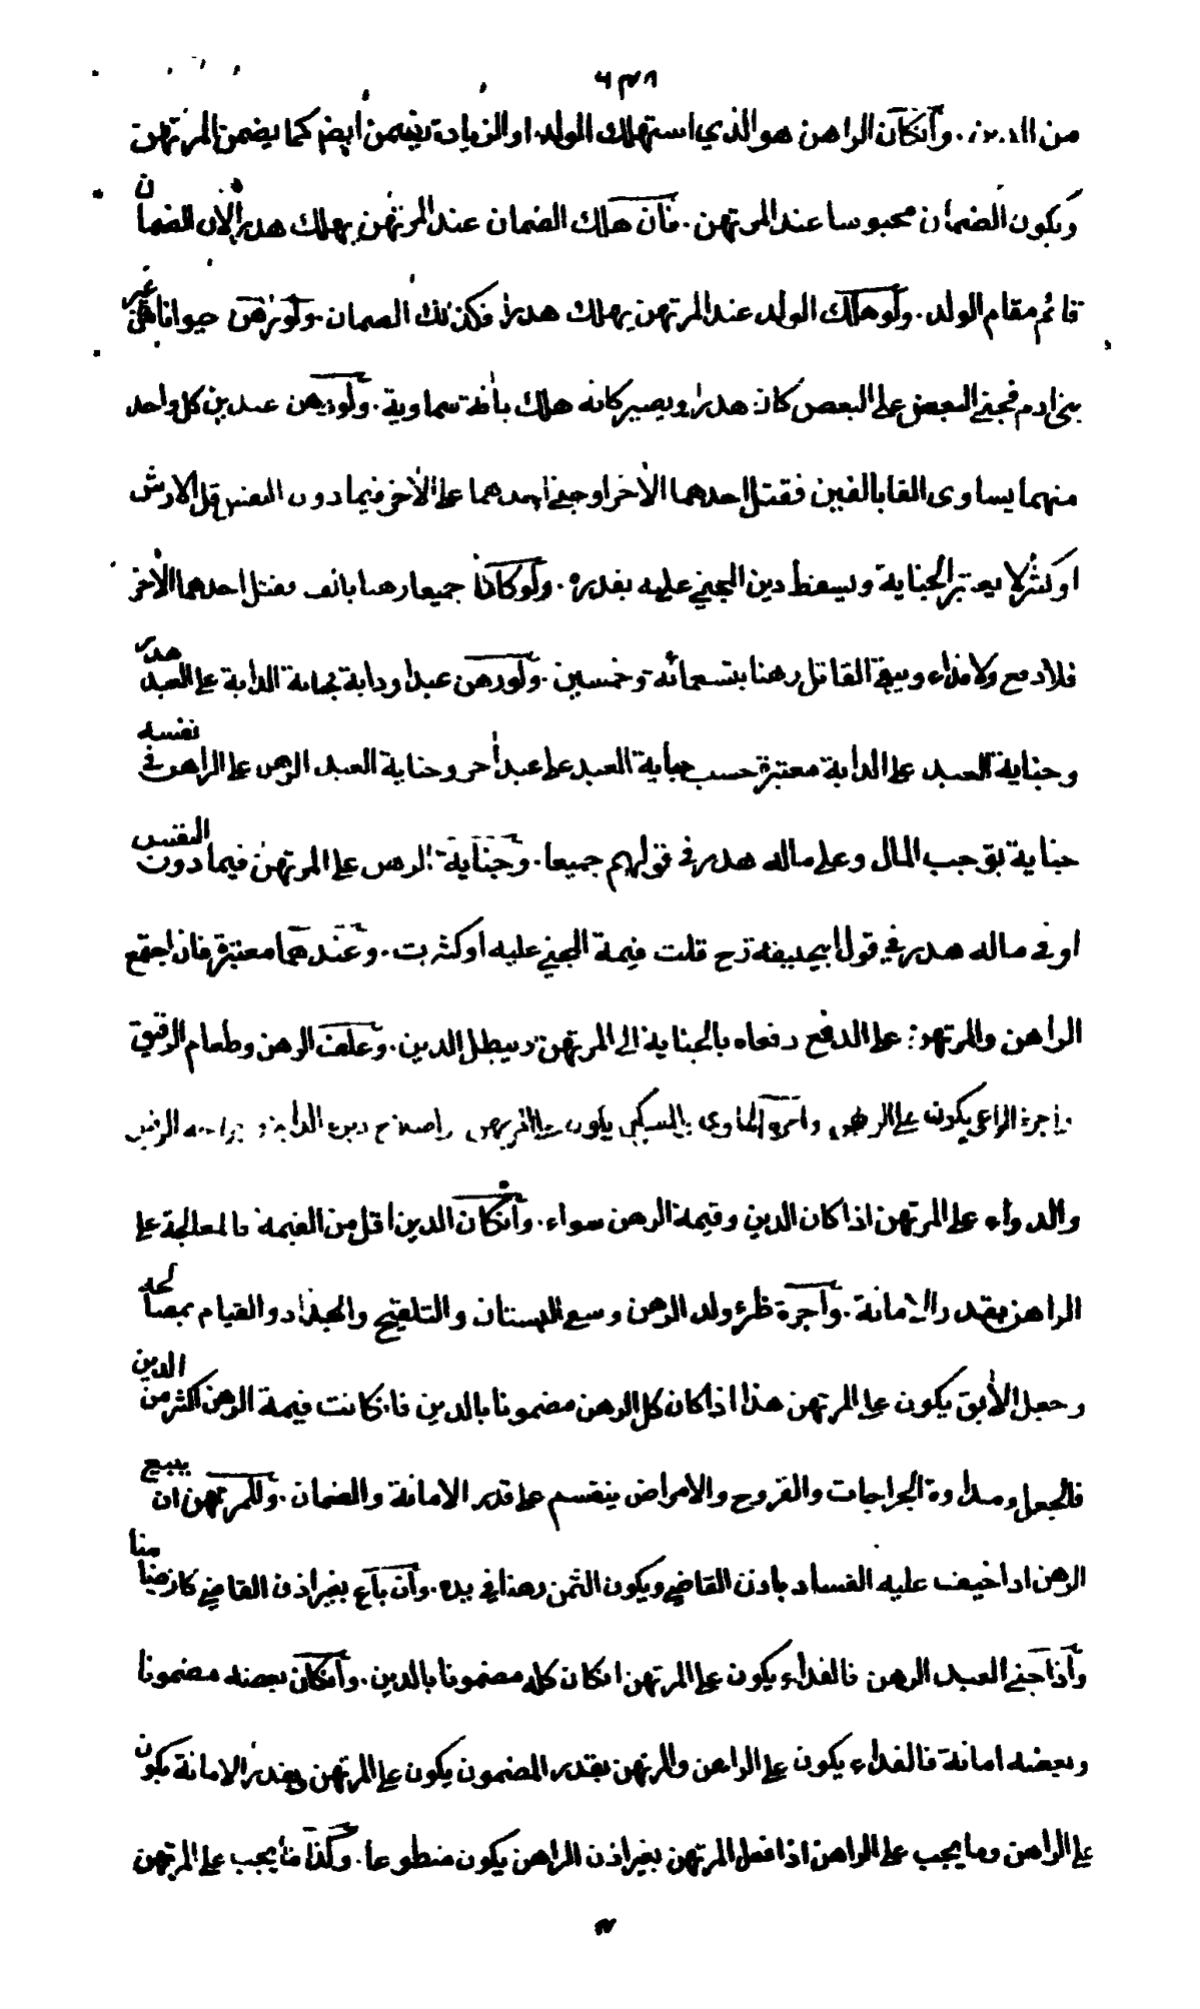 ٦٣٨
من الدين. وان كان الراهن هو الذي استهلك الولد او الزيادة يضمن ايضم كما يضمن المرتهن
ويكون الضمان محبوسا عند المرتهن. فان هلك الضمان عند المرتهن يهلك هدرا لان الضمان
قائم مقام الولد. ولو هلك الولد عند المرتهن يهلك هدرا فكذلك الضمان. ولو رهن حيوانا من غير
بني ادم فجنى البعض على البعض كان هدرا ويصير كانه هلك بآفة سماوية. ولو رهن عبدين كل واحد
منهما يساوى الفا بالفين فقتل احدهما الاخر او جنى احدهما على الاخر فيما دون النفس قل الارش
او كثر لا يعتبر الجناية ويسقط دين المجني عليه بقدره. ولو كانا جميعا رهنا بالف فقتل احدهما الاخر
فلا دفع ولا فداء ويبقى القاتل رهنا بتسعمائة وخمسين. ولو رهن عبدا ودابة فجناية الدابة على العبد هدر
وجناية العبد على الدابة معتبرة حسب جناية العبد على عبد اخر وجناية العبد الرهن على الراهن في نفسه
جناية توجب المال وعلى ماله هدر في قولهم جميعا. وجناية الرهن على المرتهن فيما دون النفس
او في ماله هدر في قول ابيحنيفة رح قلت قيمة المجني عليه او كثرت. وعندهما معتبرة فان اجتمع
الراهن والمرتهن على الدفع دفعاه بالجناية الى المرتهن ويبطل الدين. وعلف الرهن وطعام الرقيق
واجرة الراعي يكون على الراهن واجرة المأوى
والدواء على المرتهن اذا كان الدين وقيمة الرهن سواء. وان كان الدين اقل من القيمة فالمعالجة على
الراهن بقدر الامانة. واجرة ظئر ولد الرهن وسقي البستان والتلقيح والجذاد والقيام بمصالحه
وجعل الآبق يكون على المرتهن هذا اذا كان كل الرهن مضمونا بالدين فان كانت قيمة الرهن اكثر من الدين
فالجعل ومداوة الجراحات والقروح والامراض ينقسم على قدر الامانة والضمان. وللمرتهن ان يبيع
الرهن اذا خيف عليه الفساد باذن القاضي ويكون الثمن رهنا في يده. وان باع بغير اذن القاضي كان ضامنا
واذا جنى العبد الرهن فالفداء يكون على المرتهن ان كان كله مضمونا بالدين. وان كان بعضه مضمونا
وبعضه امانة فالفداء يكون على الراهن والمرتهن بقدر المضمون يكون على المرتهن وبقدر الامانة يكون
على الراهن وما يجب على الراهن اذا فعل المرتهن بغير اذن الراهن يكون متطوعا. وكذا ما يجب على المرتهن